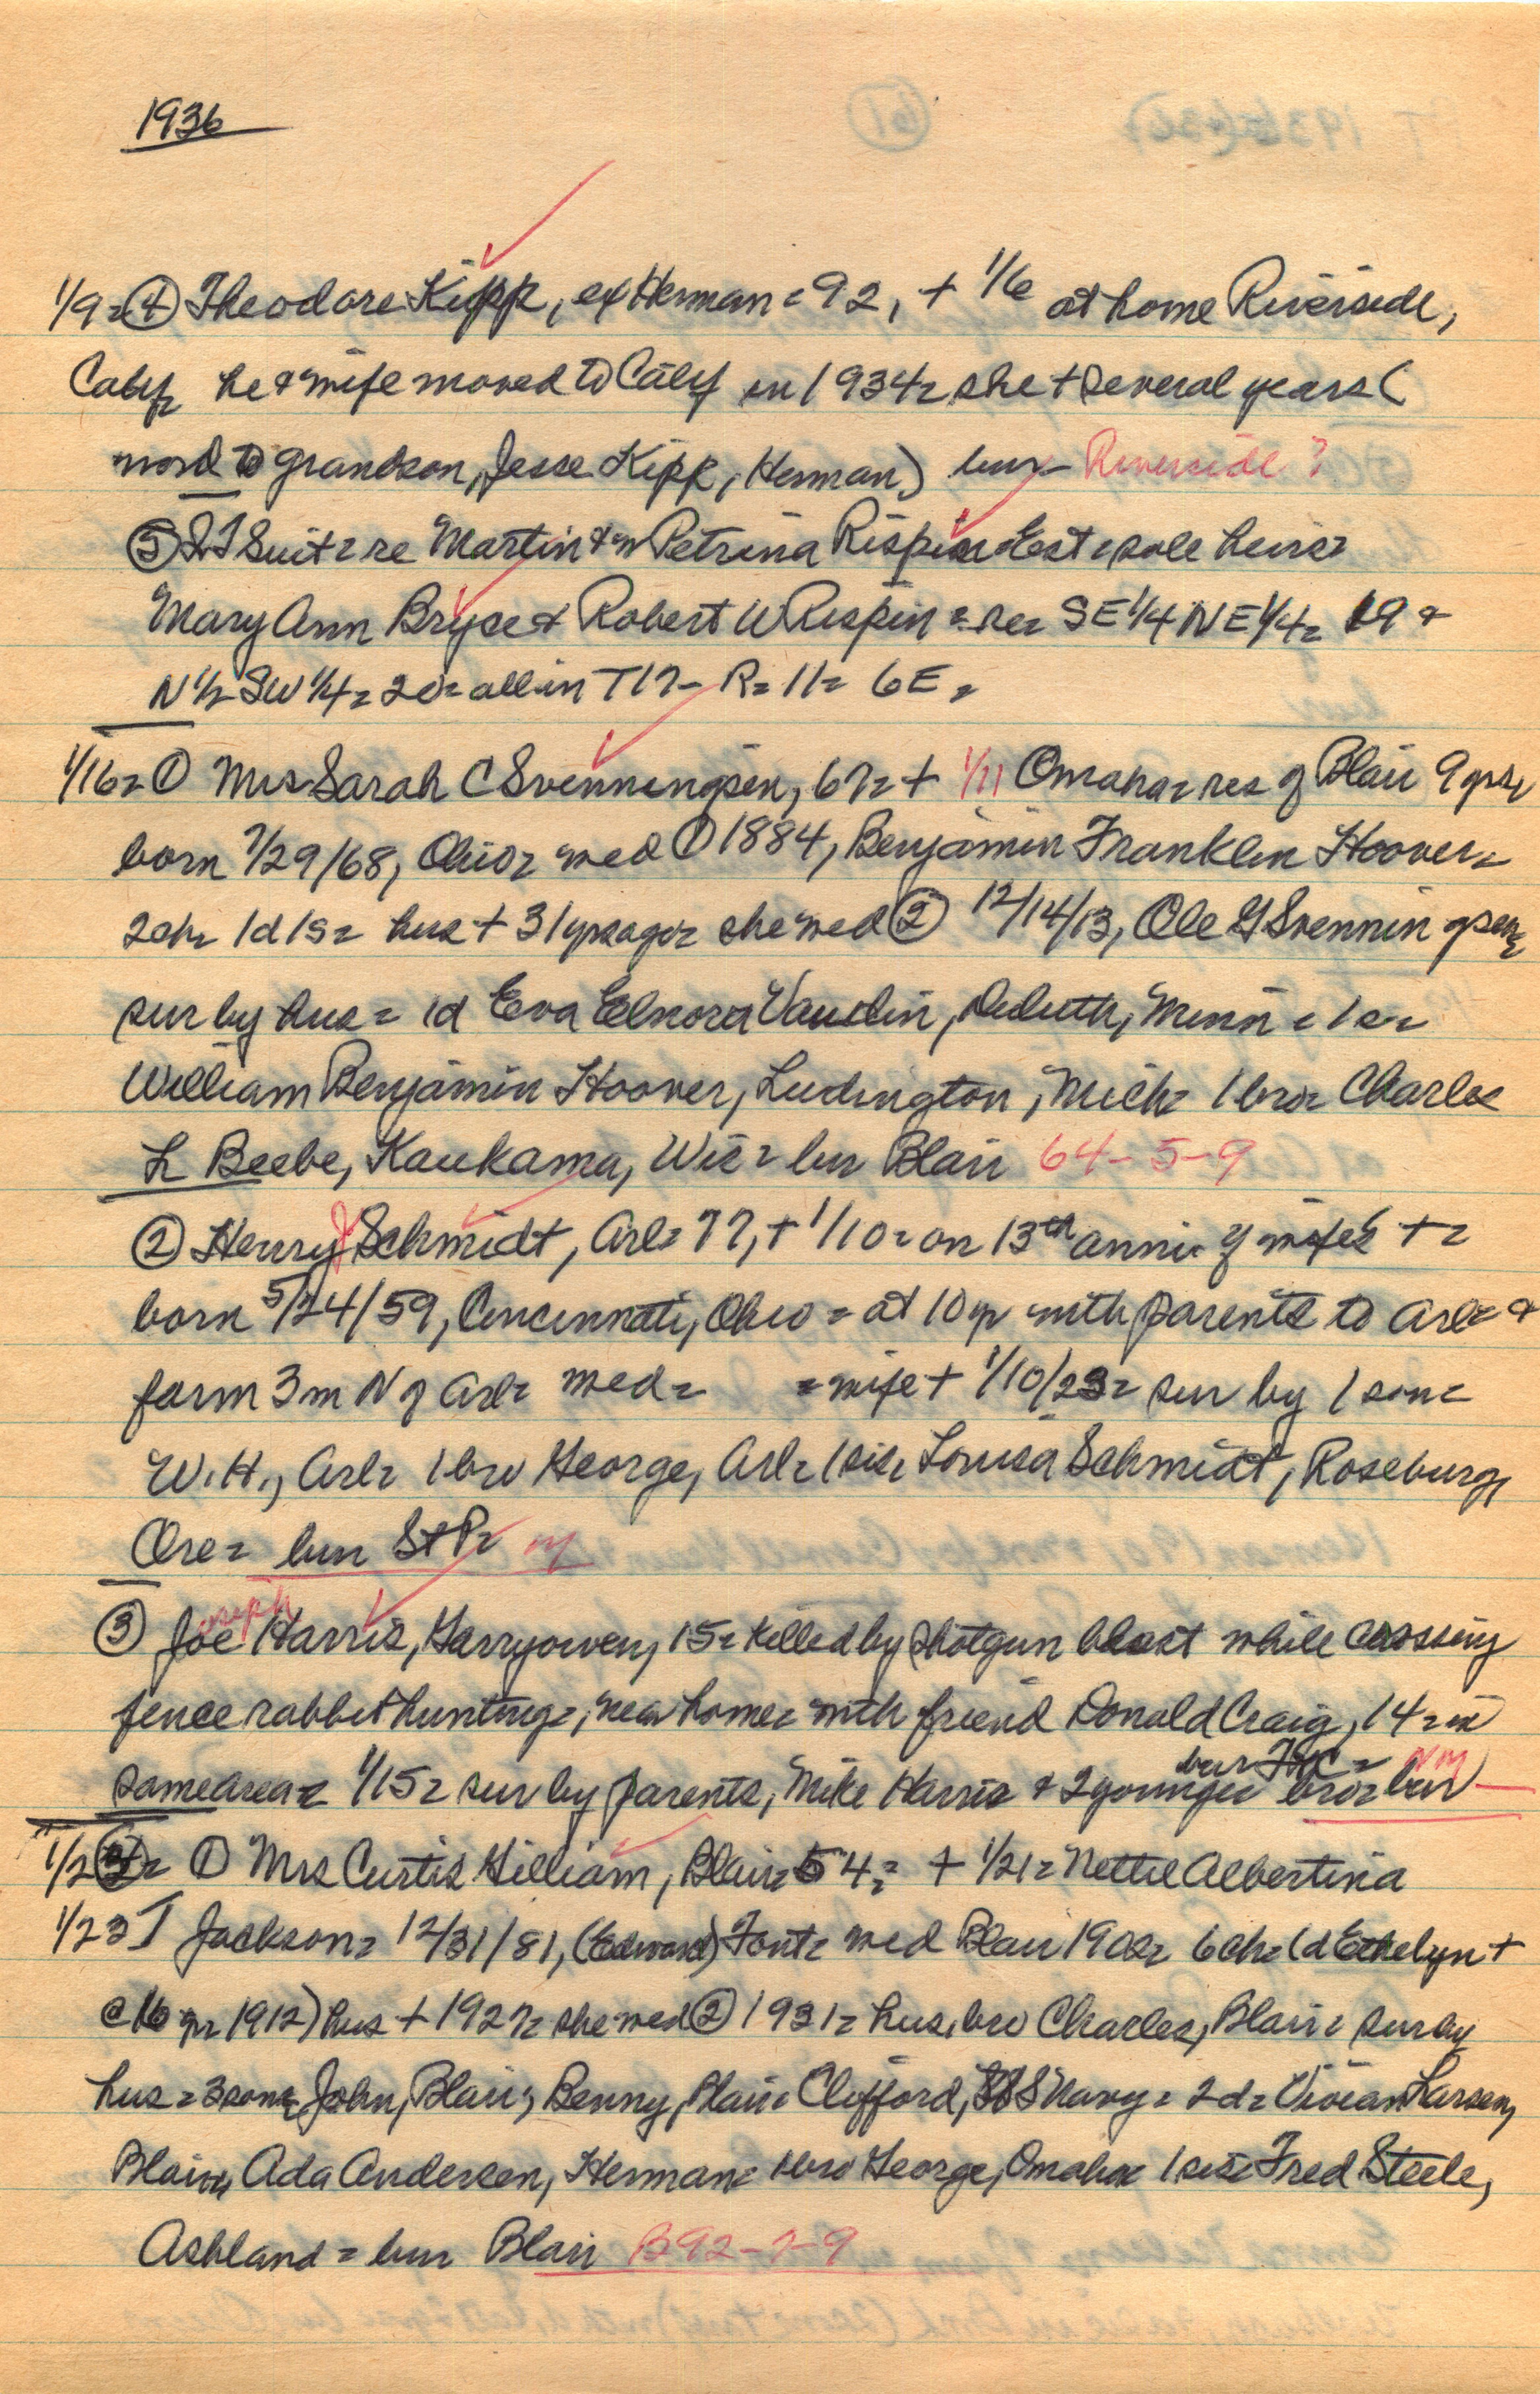 1936
1/9 = ④ Theodore Kipp, ex Herman = 92, + 1/6 at home Riverside,
Calif, he & wife moved to Calif in 1934 = she + several years (
word to grandson, Jesse Kipp, Herman) bur - Riverside ?
⑤ Suit = re Martin & w Petrina Rispin Est = sole heirs =
Mary Ann Bryce & Robert W Rispin = re = SE 1/4 NE 1/4 = 19 &
N 1/2 SW 1/4 = 20 = all in T17 - R = 11 = 6E =
1/16 = ① Mrs Sarah C Svenningsen, 67 = + 1/11 Omaha = res of Blair 9 yrs =
born 7/29/68, Ohio = wed ① 1884, Benjamin Franklin Hoover =
2ch = 1d 1s = hus + 31 yrs ago = she wed ② 12/14/13, Ole G Svenningsen =
sur by hus = 1d Eva Elnora Vaudin, Duluth, Minn = 1s =
William Benjamin Hoover, Ludington, Mich = 1 bro = Charles
L Beebe, Kaukama, Wis = bur Blair 64-5-9
② Henry J Schmidt, Arl = 77, + 1/10 = on 13th anniv of wife's + =
born 5/24/59, Cincinnati, Ohio = at 10 yr with parents to Arl = &
farm 3 m N of Arl = wed = = wife + 1/10/23 = sur by 1 son =
W.H., Arl = 1 bro George, Arl = 1 sis = Louisa Schmidt, Roseburg,
Ore = bur St P =
oseph
③ Joe Harris, Garryowen, 15 = killed by shotgun blast while crossing
fence rabbit hunting =, near home = with friend Donald Craig, 14 = in
bur
same area = 1/15 = sur by parents, Mike Harris & 2 younger bro = bur
1/2 = ① Mrs Curtis Gilliam, Blair = 54 = + 1/21 = Nettie Albertina
1/23 Jackson = 12/31/81, (Edward) Font = wed Blair 1902 = 6ch = (d Ethelyn +
@ 16 yr 1912) hus + 1927 = she wed ② 1931 = hus, bro Charles, Blair = sur by
hus = 3 sons = John, Blair, Benny, Blair = Clifford, US Navy = 2d = Vivian Larsen,
Blair, Ada Andersen, Herman = 1 bro George, Omaha 1 sis = Fred Steele,
Ashland = bur Blair B92-7-9